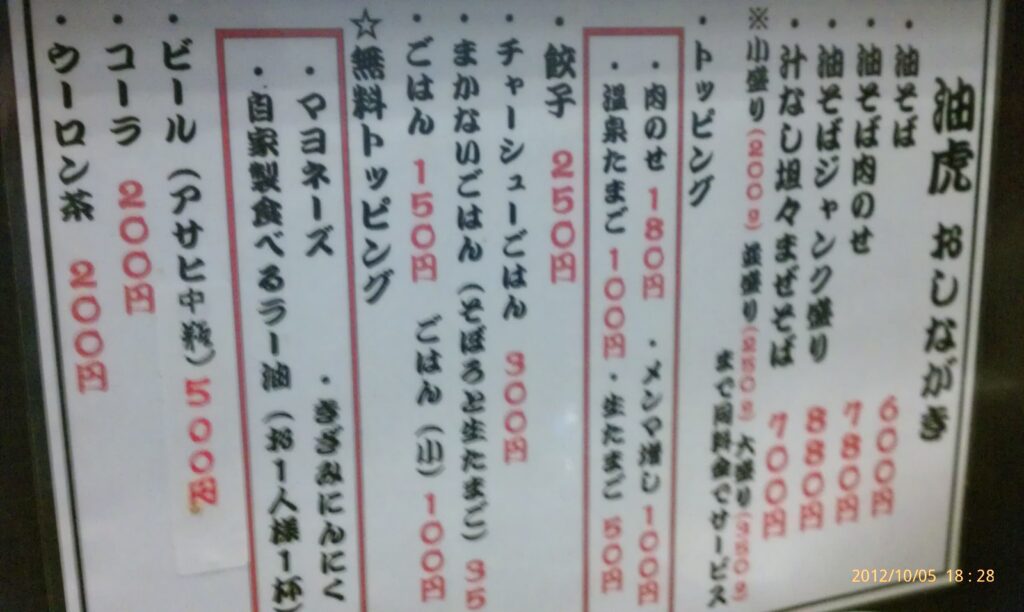 油虎 おしながき
・油そば 600円
・油そば肉のせ 780円
・油そばジャンク盛り 880円
・汁なし坦々まぜそば 700円
※小盛り(200g) 並盛り(250g) 大盛り(350g)
まで同料金でサービス
・トッピング
・肉のせ 180円 ・メンマ増し 100円
・温泉たまご 100円 ・生たまご 50円
・餃子 250円
・チャーシューごはん 300円
・まかないごはん(そぼろと生たまご) 35
・ごはん 150円 ごはん(小) 100円
☆無料トッピング
・マヨネーズ ・きざみにんにく
・自家製食べるラー油(お1人様1杯)
・ビール(アサヒ中瓶) 500円
・コーラ 200円
・ウーロン茶 200円
2012/10/05 18:28